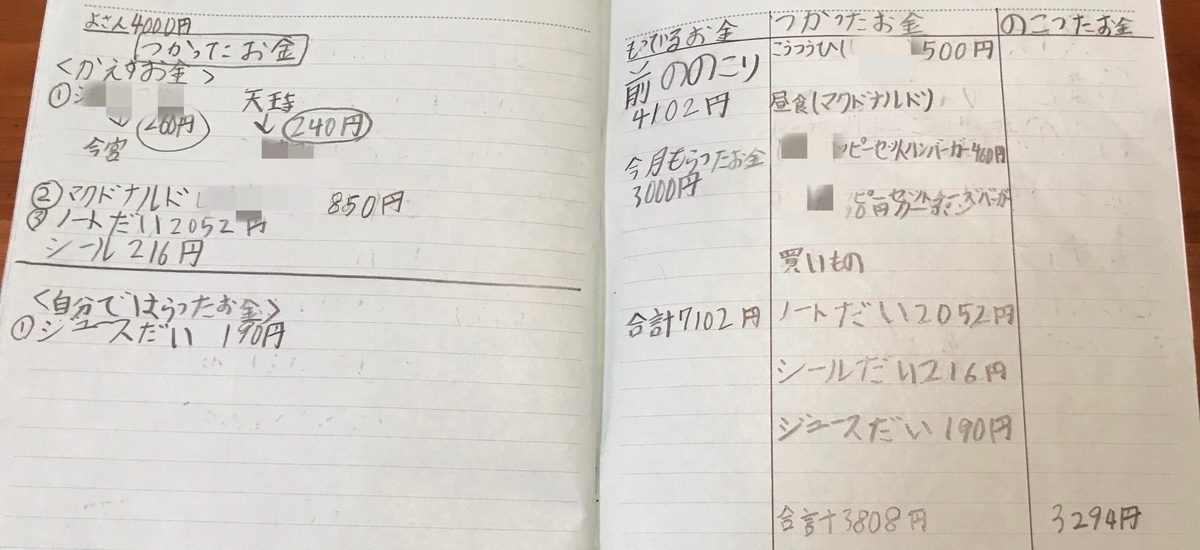 よさん4000円
つかったお金
<かえすお金>
①
天王寺
260円
240円
今宮
②マクドナルド 850円
③ノートだい2052円
シール216円
<自分ではらったお金>
①ジュースだい 190円
もっているお金
前ののこり
4102円
今月もらったお金
3000円
合計7102円
つかったお金
こうつうひ 500円
昼食(マクドナルド)
ッピーセットハンバーガー460円
ピーセット
買いもの
ノートだい2052円
シールだい216円
ジュースだい190円
合計3808円
のこったお金
3294円